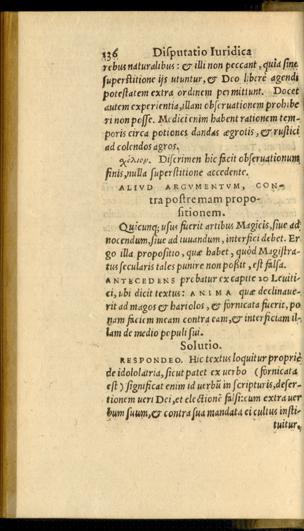 136 Disputatio Iuridica
rebus naturalibus: & illi non peccant, quia sine
superstitione ijs utuntur, & Deo liberè agendi
potestatem extra ordinem permittunt. Docet
autem experientia, illam obseruationem prohibe
ri non posse. Medici enim habent rationem tem-
poris circa potiones dandas ægrotis, & rustici
ad colendos agros.
Discrimen hic facit obseruationum
finis, nulla superstitione accedente.
ALIVD ARGVMENTVM, CON-
tra postremam propo-
sitionem.
Quicunq; usus fuerit artibus Magicis, siue ad
nocendum, siue ad iuuandum, interfici debet. Er
go illa propositio, quæ habet, quòd Magistra-
tus secularis tales punire non possit, est falsa.
ANTECEDENS probatur ex capite 20 Leuiti-
ci, ubi dicit textus: ANIMA quæ declinaue-
rit ad magos & hariolos, & fornicata fuerit, po
nam faciem meam contra eam, & interficiam il-
lam de medio populi sui.
Solutio.
RESPONDEO. Hic textus loquitur propriè
de idololatria, sicut patet ex uerbo (fornicata
est) significat enim id uerbũ in scripturis, deser-
tionem ueri Dei, et electionẽ falsi: cum extra uer
bum suum, & contra sua mandata ei cultus insti-
tuitur,